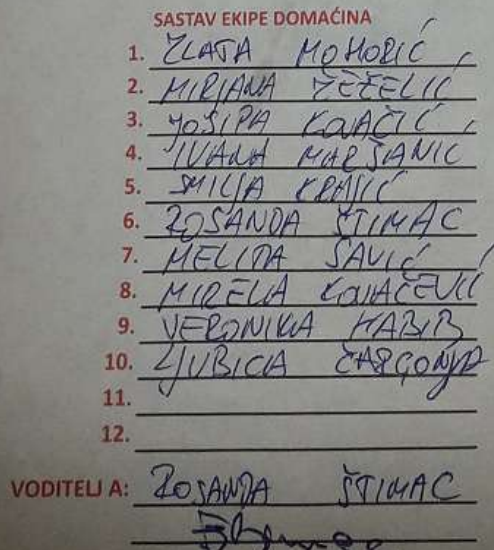 SASTAV EKIPE DOMAĆINA
1. ZLATA MOHORIĆ
2. MIRJANA ŽEŽELIĆ
3. JOSIPA KOVAČIĆ
4. IVANA MARŠANIĆ
5. SMILJA KRAŠIĆ
6. ROSANDA ŠTIMAC
7. MELITA SAVIĆ
8. MIRELA KOVAČEVIĆ
9. VERONIKA HABIB
10. LJUBICA ČARGONJA
11.
12.
VODITELJ A: ROSANDA ŠTIMAC